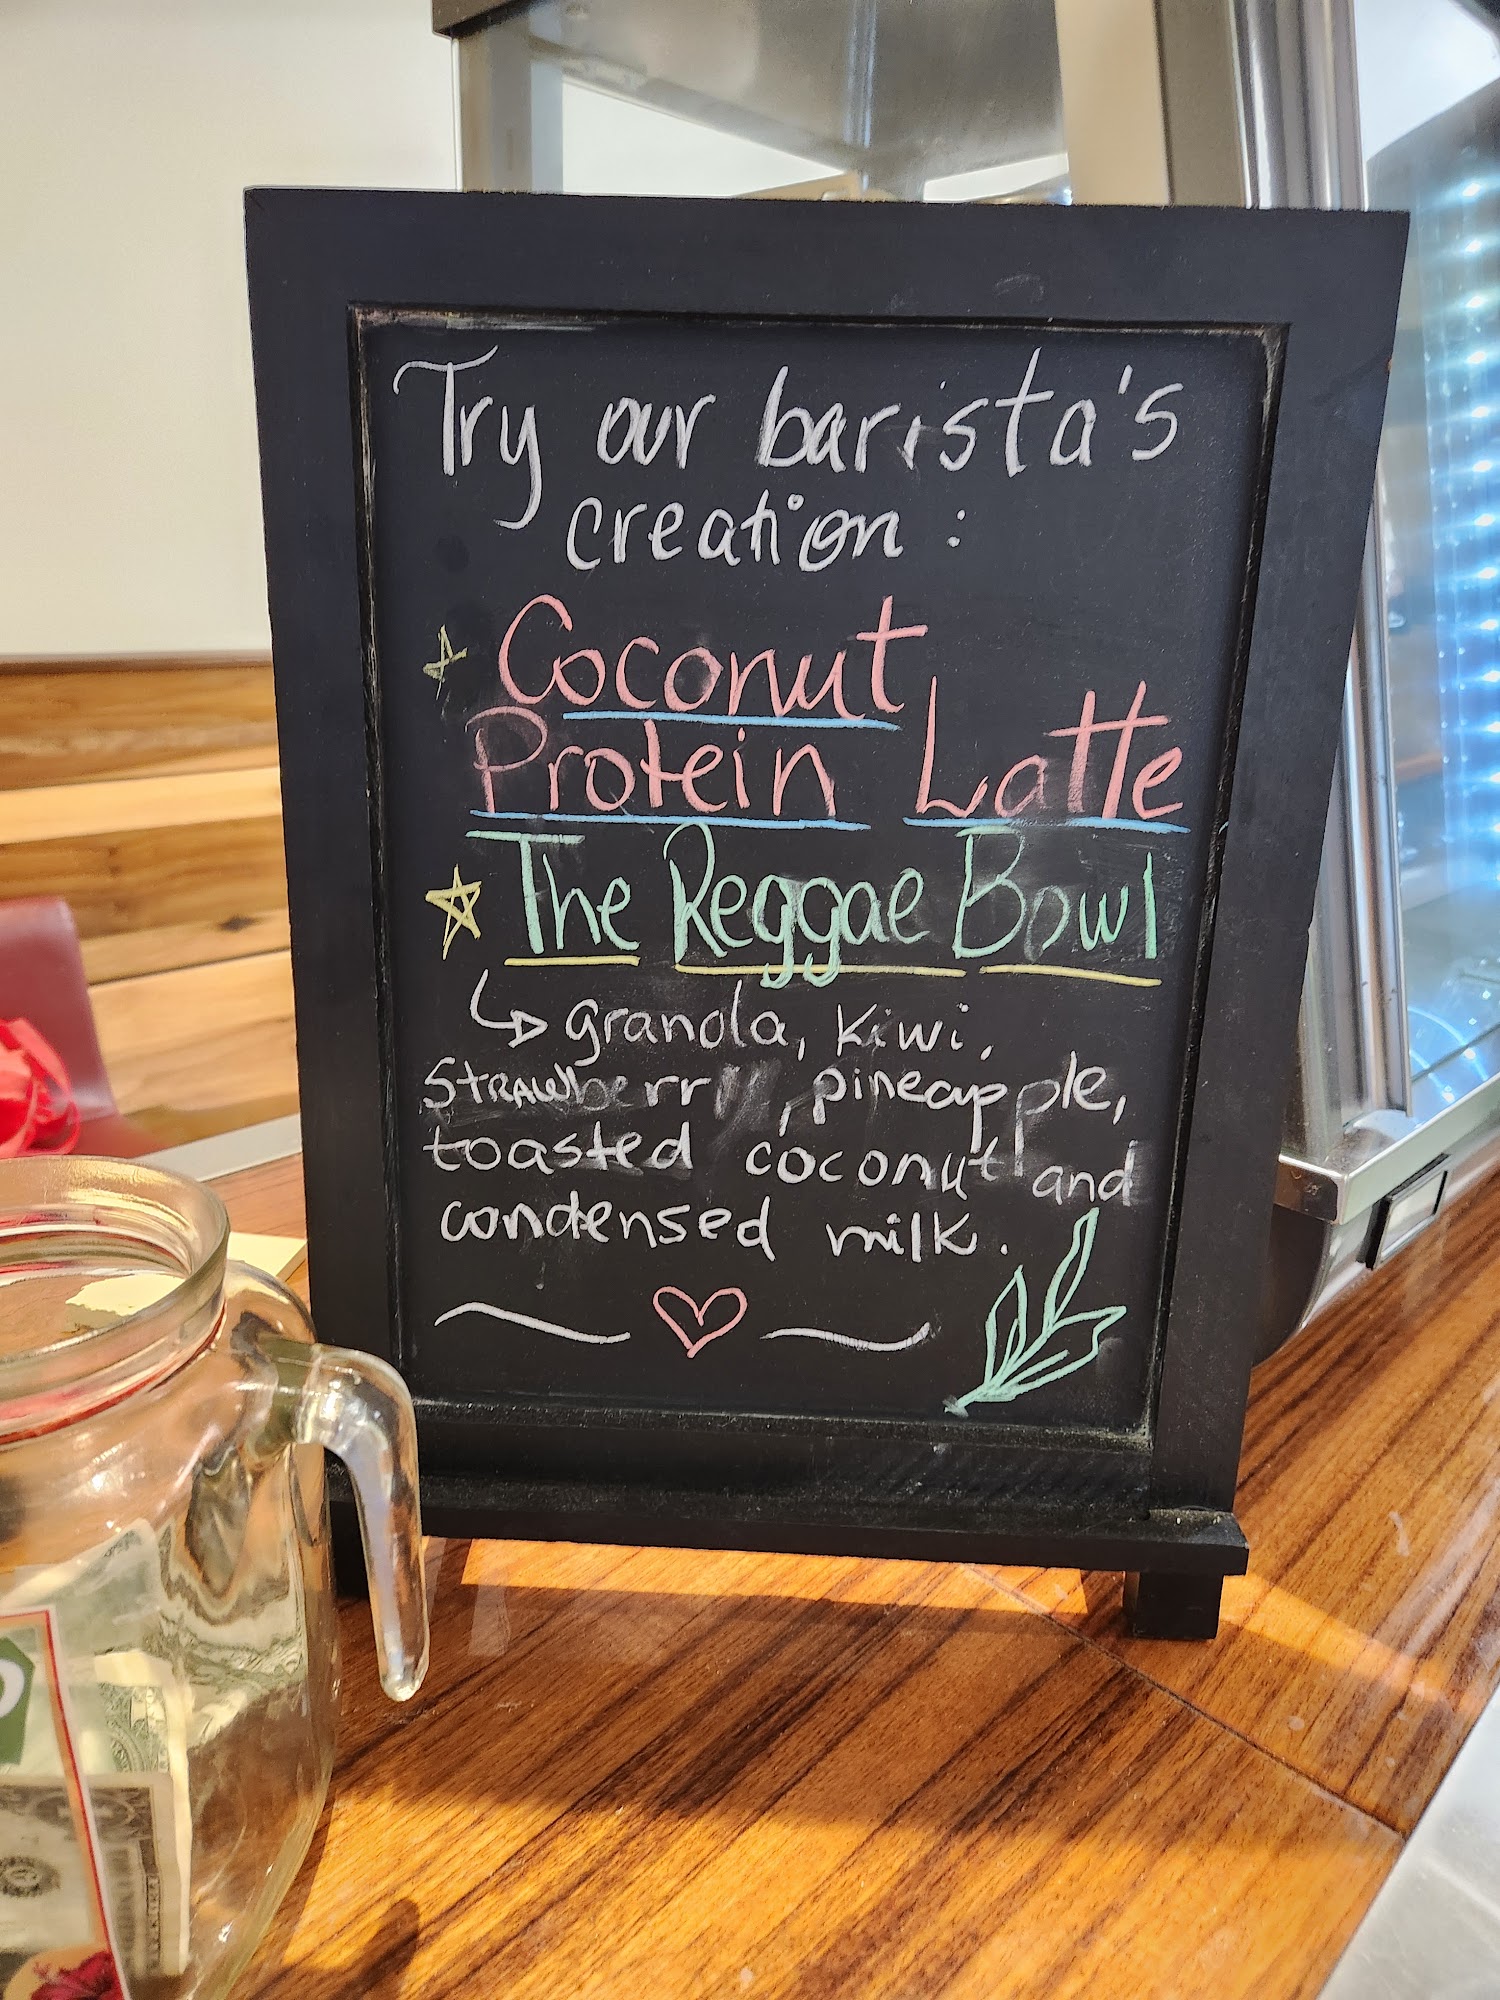 Try our barista's
creation:
Coconut
Protein Latte
The Reggae Bowl
granola, kiwi,
strawberry, pineapple,
toasted coconut and
condensed milk.